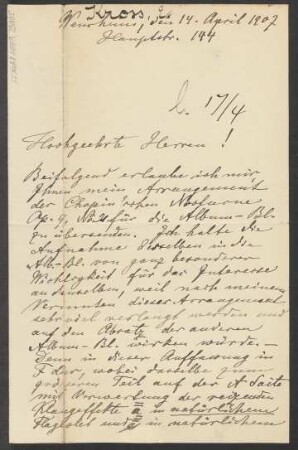 Kross
den 14. April 1907
Hauptstr. 144
b. 17/4
Hochgeehrte Herren!
Beifolgend erlaube ich mir
Ihnen mein Arrangement
der Chopin'schen Nocturne
Op. 9, No 2 für die Album-Bl.
zu übersenden. Ich halte die
Aufnahme desselben in die
Alb.-Bl. von ganz besonderer
Wichtigkeit für das Interesse
an denselben, weil nach meinem
dieses Arrangement
verlangt werden und
auf den Absatz der anderen
Album-Bl. wirken würde. –
Denn in dieser Auffassung in
F dur, wobei dasselbe zum
größeren Teil auf der A Saite
mit Verwertung der reizenden
Klangeffekte a in natürlichem
Flageolet und a in natürlichem